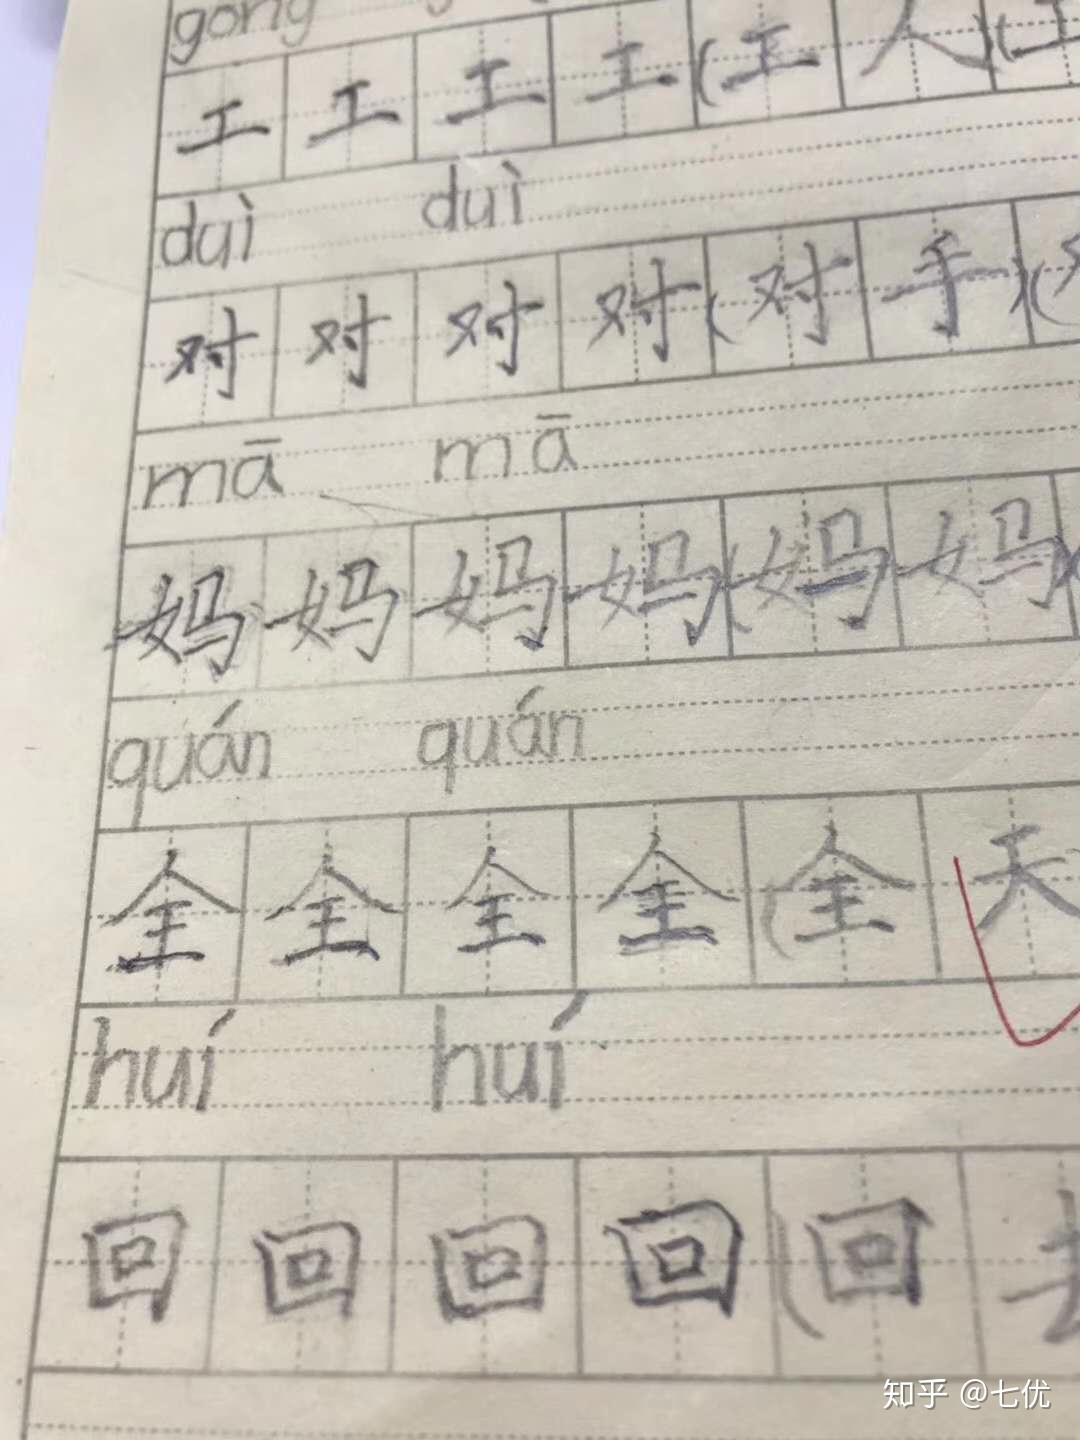 gōng
工 工 工 工 (工 人) (工
duì duì
对 对 对 对 (对 手) (
mā mā
妈 妈 妈 妈 (妈 妈) (
quán quán
全 全 全 全 (全 天
huí huí
回 回 回 回 (回
知乎 @七优